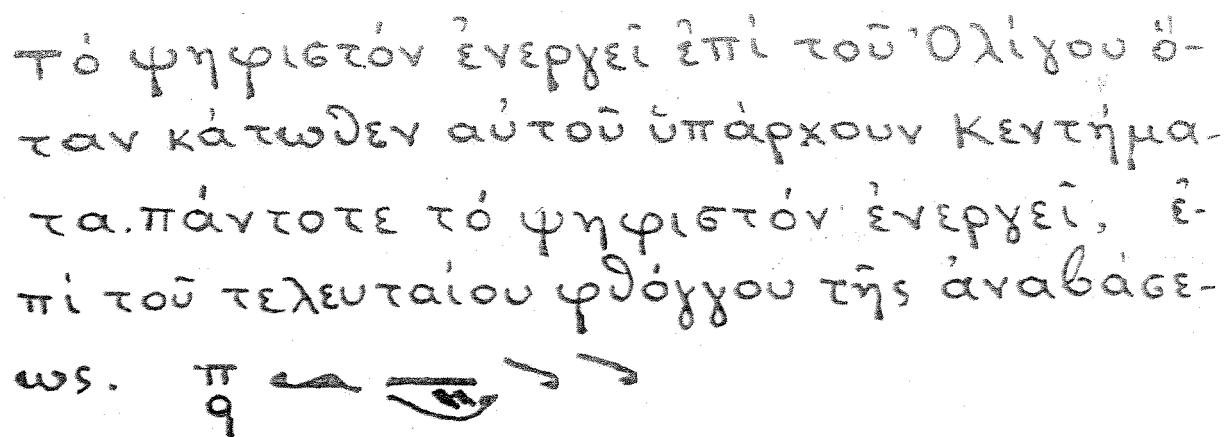 Τό ψηφιστόν ἐνεργεῖ ἐπί τοῦ Ὀλίγου ὅ-
ταν κάτωθεν αὐτοῦ ὑπάρχουν Κεντήμα-
τα. πάντοτε τό ψηφιστόν ἐνεργεῖ, ἐ-
πί τοῦ τελευταίου φθόγγου τῆς ἀναβάσε-
ως. π